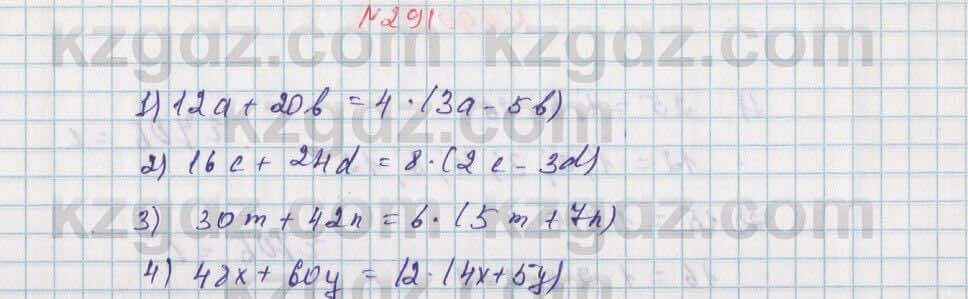 №291
kzgdz.com kzgdz.com
1) 12a + 20b = 4 · (3a - 5b)
kzgdz.com kzgdz.com
2) 16c + 24d = 8 · (2c - 3d)
3) 30m + 42n = 6 · (5m + 7n)
kzgdz.com kzgdz.com
4) 48x + 60y = 12 · (4x + 5y)